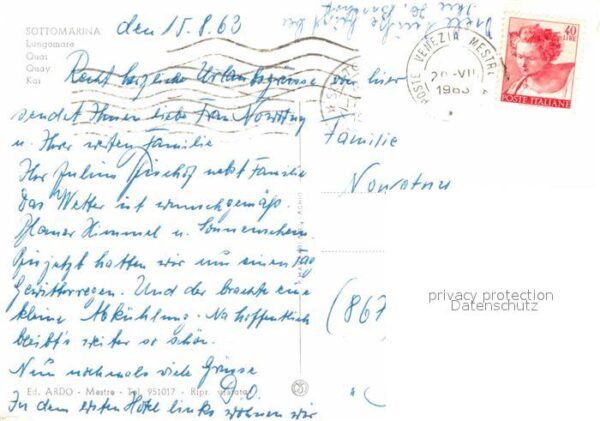 SOTTOMARINA
Lungomare
Quai
Quay
Kai
den 15.8.63
Viele
Recht herzliche Urlaubsgrüsse von hier
sendet Ihnen liebe Frau Nowottny
u. Ihrer werten Familie
Ihr Julius Bischof nebst Familie
Das Wetter ist wunschgemäß.
Blauer Himmel u. Sonnenschein
Bis jetzt hatten wir nur einen Tag
Gewitterregen. Und der brachte eine
kleine Abkühlung. Na hoffentlich
bleibt's weiter so schön.
Nun nochmals viele Grüsse
D. O.
In dem ersten Hotel links wohnen wir
Ed. ARDO - Mestre - Tel. 951017 - Ripr. vietata
POSTE VENEZIA MESTRE
1963
40
LIRE
POSTE ITALIANE
Familie
(867
privacy protection
Datenschutz